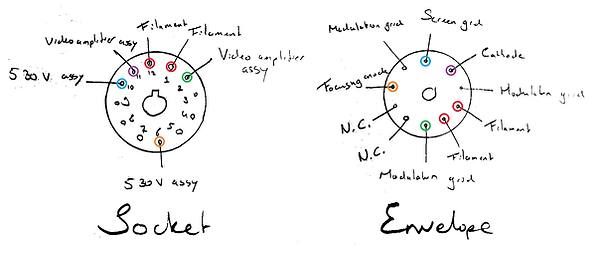 Filament
Filament
Video amplifier assy
Video amplifier
assy
530V assy
12
11
1
10
2
9
3
8
4
7
6
5
530V assy
Socket
Modulation grid
Screen grid
Cathode
Focusing anode
Modulation grid
N.C.
Filament
N.C.
Filament
Modulation grid
Envelope